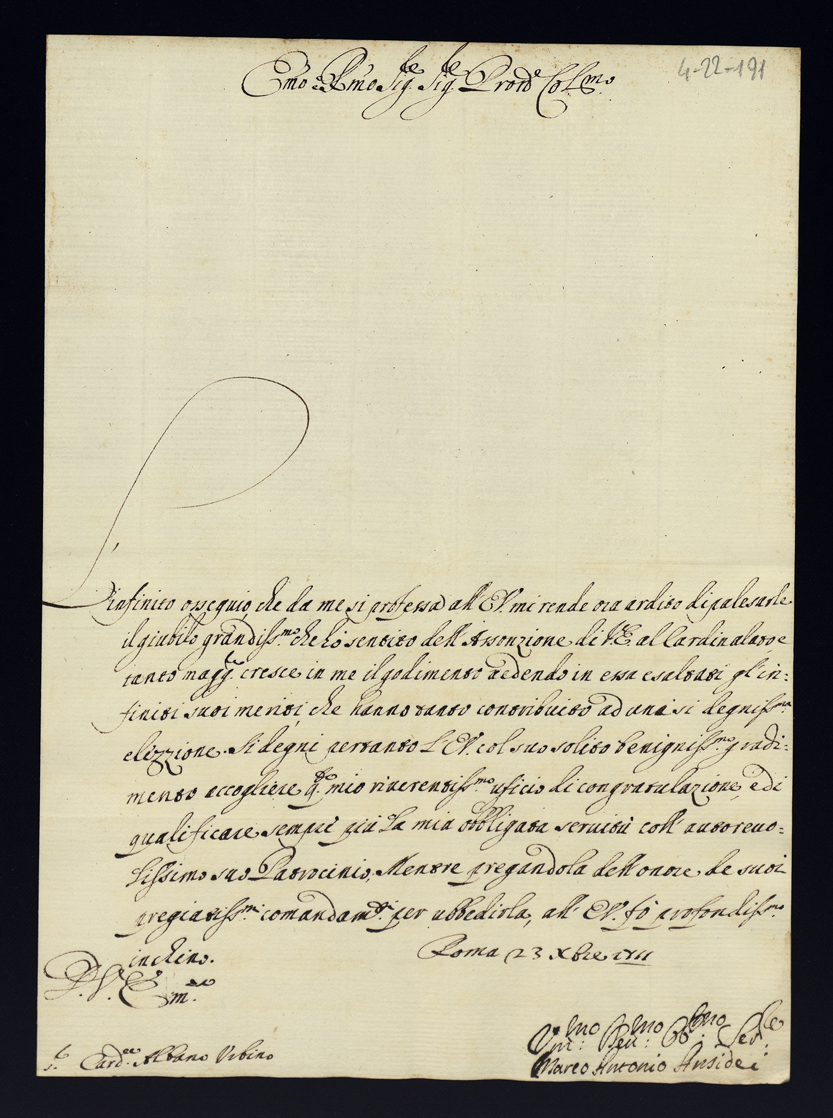 4-22-191
Emo e Rmo Sig.re Sig.re Prone Col.mo
L'infinito ossequio che da me si professa all' E.V. mi rende ora ardito di palesarle
il giubilo grandiss.mo che hò sentito dell' Assonzione di V.E. al Cardinalato, e
tanto magg.re cresce in me il godimento vedendo in essa esaltati gl' in:
finiti suoi meriti, che hanno tanto contribuito ad una si degniss.ma
elezzione. Si degni pertanto L'E.V. col suo solito benigniss.mo gradi:
mento accogliere q.to mio riverentiss.mo uficio di congratulazione, e di
qualificare sempre più la mia obbligata servitù coll' autorevo:
lissimo suo Patrocinio, Mentre pregandola dell' onore de suoi
pregiatiss.mi comandam.ti per ubbedirla, all' E.V. fò profondiss.mo
inchino.
Roma 23 Xbre 1711
D. V. E.
Card.le Albano Urbino
Um:mo Deu:mo Ob:mo Ser:le
Marco Antonio Ansidei